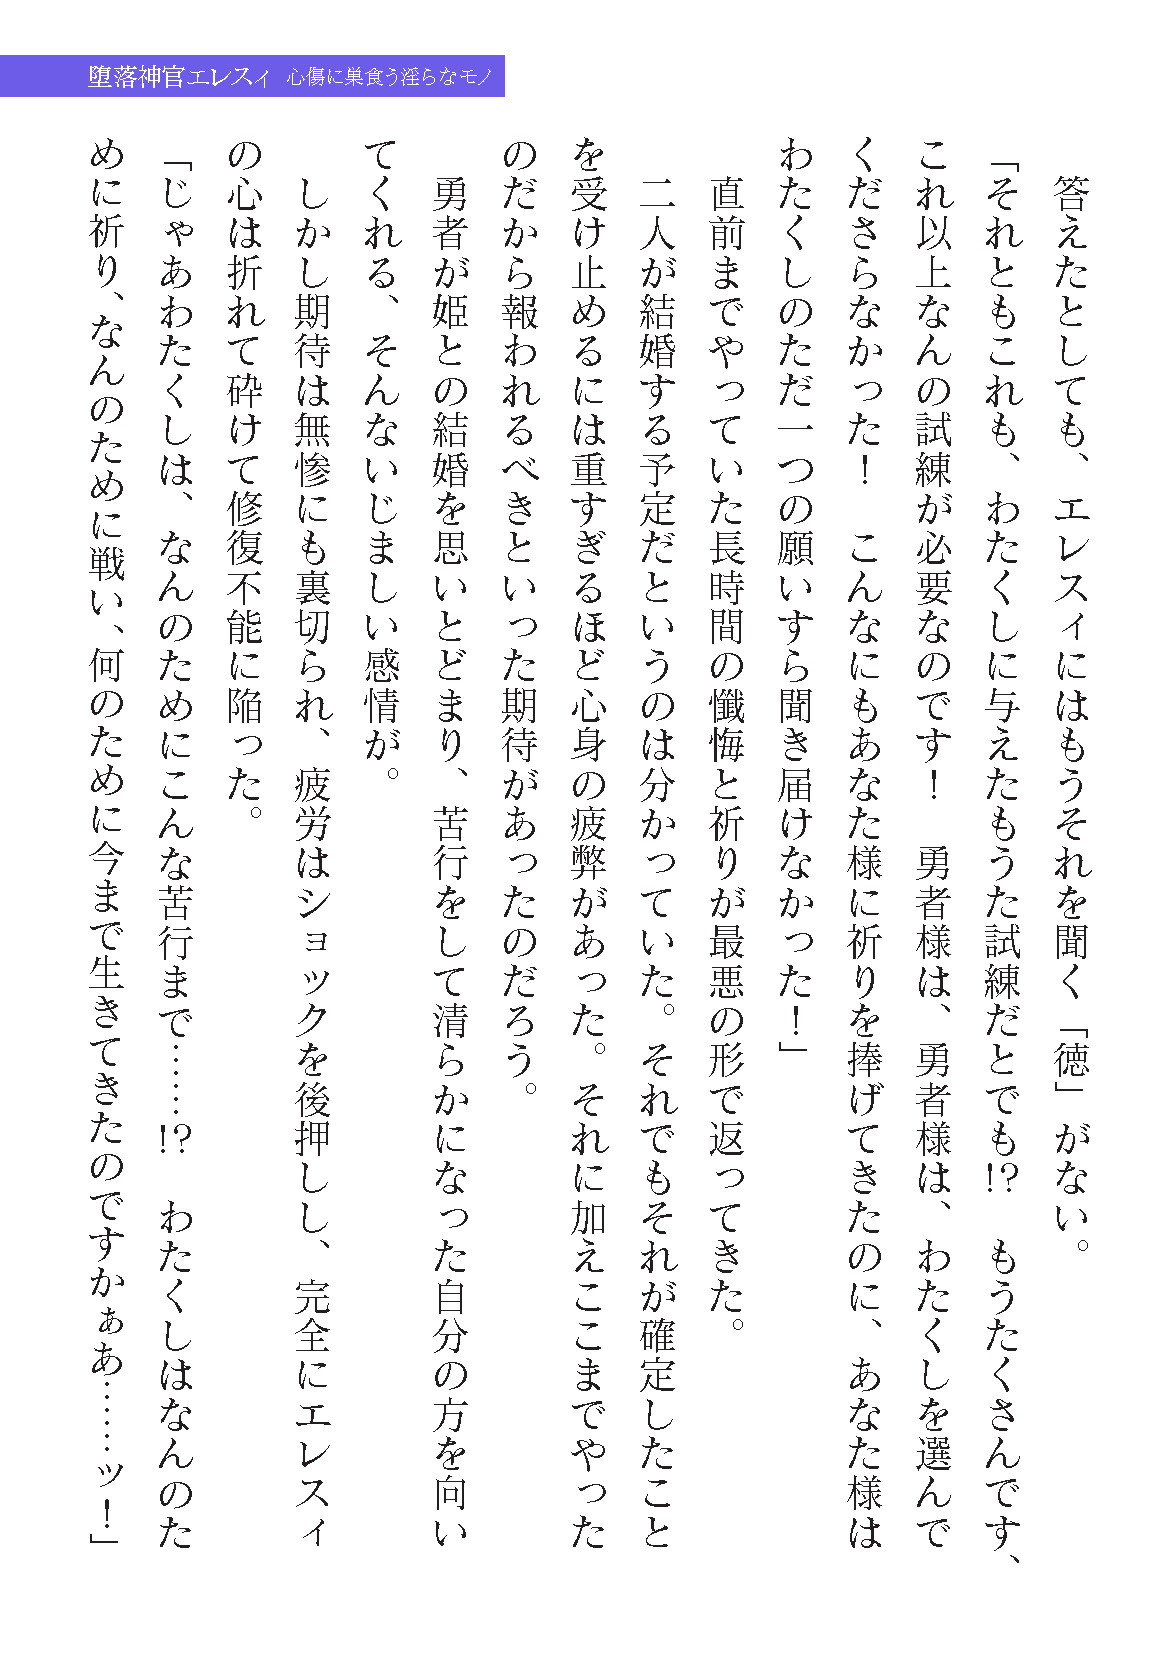 堕落神官エレスィ 心傷に巣食う淫らなモノ
　答えたとしても、エレスィにはもうそれを聞く「徳」がない。
「それともこれも、わたくしに与えたもうた試練だとでも!?　もうたくさんです、
これ以上なんの試練が必要なのです！　勇者様は、勇者様は、わたくしを選んで
くださらなかった！　こんなにもあなた様に祈りを捧げてきたのに、あなた様は
わたくしのただ一つの願いすら聞き届けなかった！」
　直前までやっていた長時間の懺悔と祈りが最悪の形で返ってきた。
　二人が結婚する予定だというのは分かっていた。それでもそれが確定したこと
を受け止めるには重すぎるほど心身の疲弊があった。それに加えここまでやった
のだから報われるべきといった期待があったのだろう。
　勇者が姫との結婚を思いとどまり、苦行をして清らかになった自分の方を向い
てくれる、そんないじましい感情が。
　しかし期待は無惨にも裏切られ、疲労はショックを後押しし、完全にエレスィ
の心は折れて砕けて修復不能に陥った。
「じゃあわたくしは、なんのためにこんな苦行まで……!?　わたくしはなんのた
めに祈り、なんのために戦い、何のために今まで生きてきたのですかぁあ……ッ！」